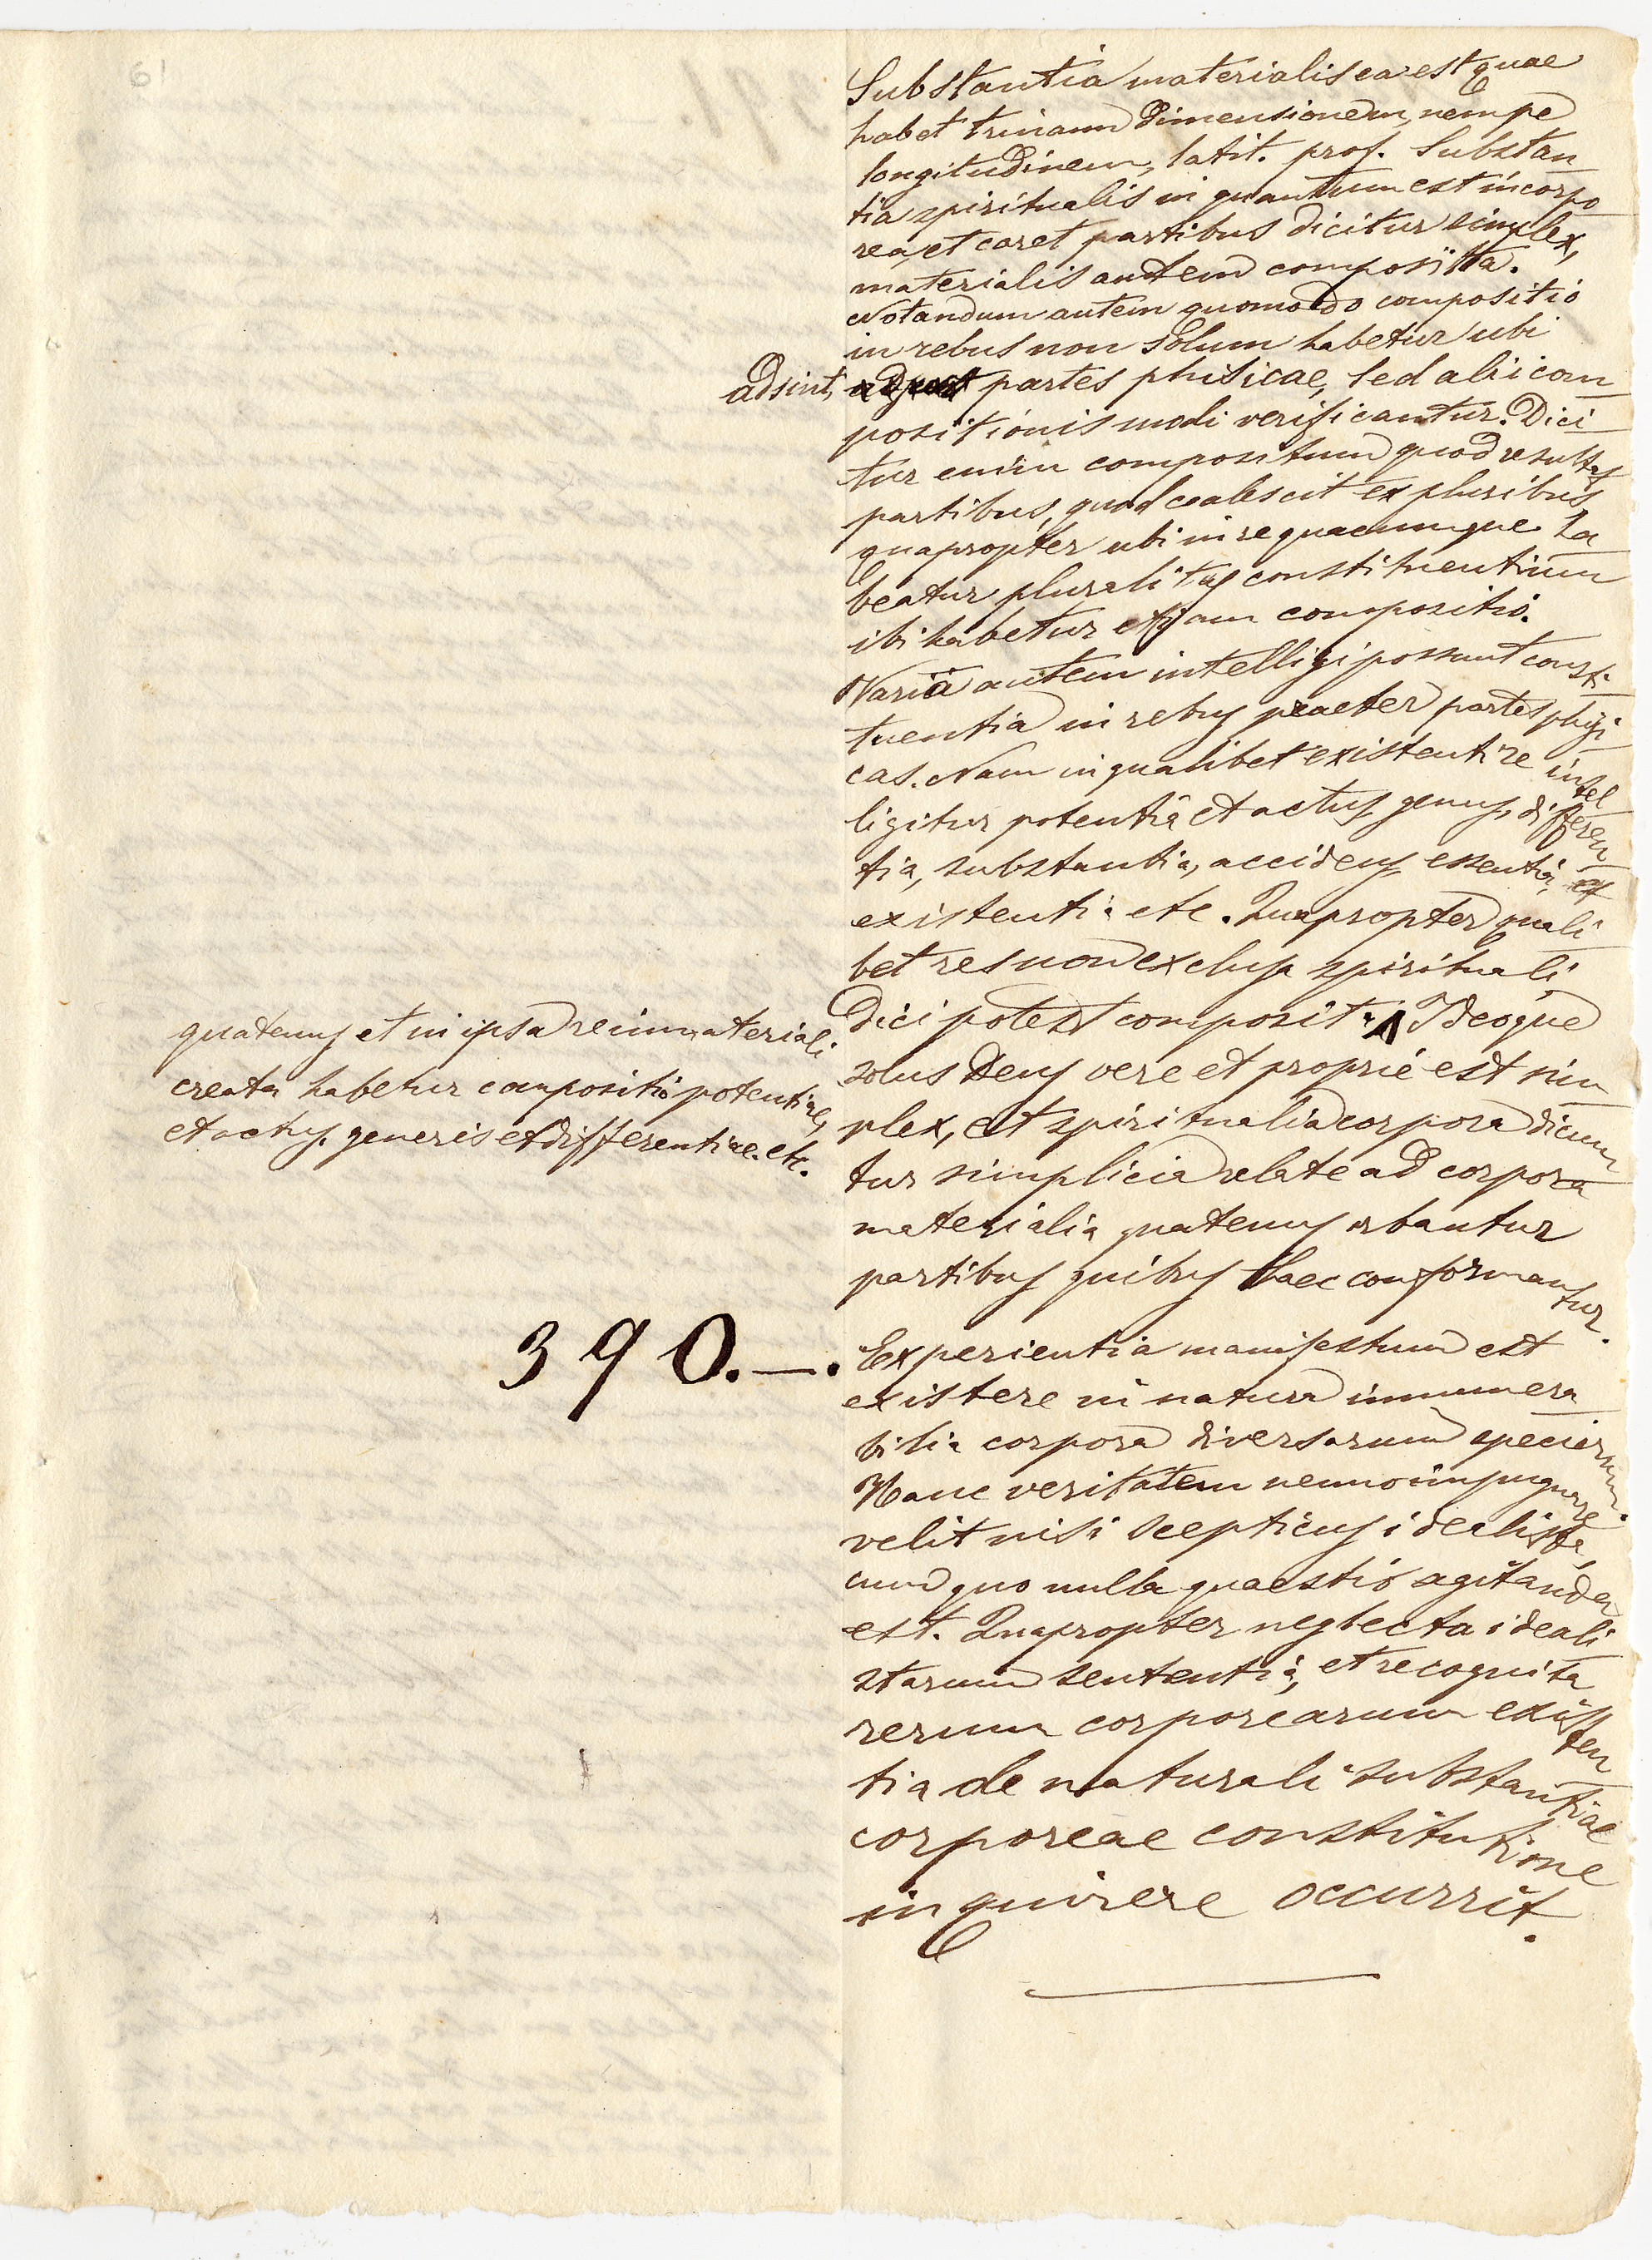 61
Substantia materialis ea est quae
habet trinam dimensionem, nempe
longitudinem, latit. prof. Substan
tia spiritualis in quantum est incorpo
rea, et caret partibus dicitur simplex,
materialis autem composita.
Notandum autem quomodo compositio
in rebus non solum habetur ubi
adsint, partes phisicae, sed alii com
positionis modi verificantur. Dici
tur enim compositum quod resultat
partibus, quod coalescit ex pluribus
quapropter ubi in re quacumque ha
beatur pluralitas constituentium
ibi habetur etiam compositio.
Varia autem intelligi possunt consti
tuentia in rebus praeter partes phisi
cas. Nam in qualibet existenti re intel
ligitur potentia et actus, genus, differen
tia, substantia, accidens, essentia, et
existentia etc. Quapropter quali
bet res non exclusa spirituali
dici potest composita Ideoque
quatenus et in ipsa re immateriali
creata habetur compositio potentiae,
et actus, generis et differentiae. etc.
solus Deus vere et proprie est sim
plex, et spiritualia corpora dicun
tur simplicia relate ad corpora
materialia quatenus orbantur
partibus quibus haec conformantur.
390.—. Experientia manifestum est
existere in natura innumera
bilia corpora diversarum specierum.
Hanc veritatem nemo impugnare
velit nisi scepticus idealista,
cum quo nulla quaestio agitanda
est. Quapropter neglecta ideali
starum sententia, et recognita
rerum corporearum existen
tia de naturali substantiae
corporeae constitutione
inquirere occurrit.